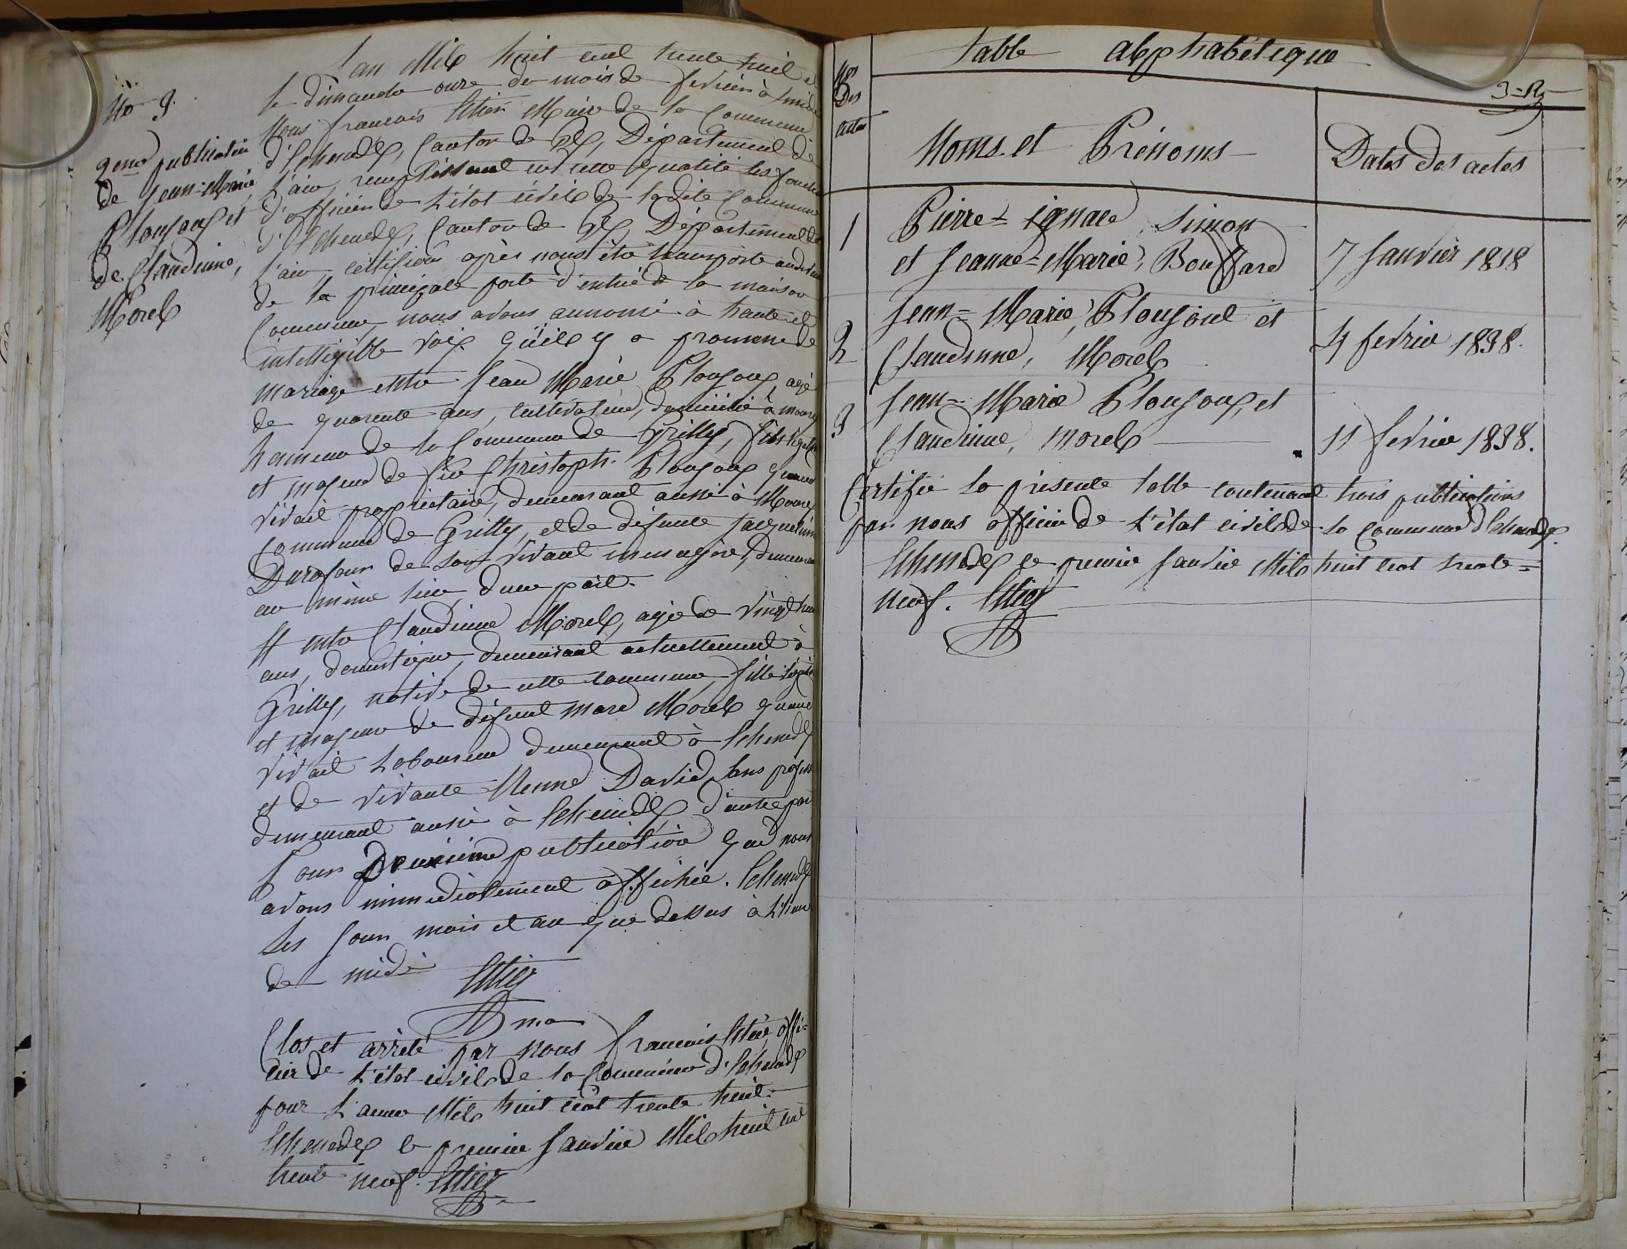 No 3.
2eme publication
de Jean-Marie
Plonjoux et
de Claudine,
Morel
L'an Mil huit cent trente huit et
le dimanche onze du mois de fevrier à midi
Nous francois Maire de la Commune
d'Echenevex, Canton de Gex, Département de
L'ain, remplissant en cette qualité les fonctions
d'officier de L'état civil de ladite Commune
d'Echenevex, Canton de Gex, Département de
L'ain, certifions après nous être transporté
de la principale porte d'entrée de la maison
Commune, nous avons annoncé à haute et
intelligible voix qu'il y a promesse de
mariage entre Jean Marie Plonjoux, agé
de quarente ans, cultivateur, domicilié à
hameau de la Commune de Grilly, fils légitime
et majeur de feu Christoph. Plonjoux quand
vivait propriétaire, demeurant aussi à
Commune de Grilly, et de défunte Jacqueline
de son vivant ménagère, demeurant
au même lieu d'une part.
Et entre Claudinne Morel, agé de vingt
ans, domestique, demeurant actuellement à
Grilly, native de cette commune, fille légitime
et majeure de défunt Marc Morel quand
vivait Laboureur demeurant à Echenevex
et de vivante David, sans profession
demeurant aussi à Echenevex, d'autre part
Pour Deuxième publication que nous
avons immédiatement affichée. Echenevex
Les Jour mois et an que dessus à L'heure
de midi
Clos et arrêté par nous francois offi=
cier de L'état civil de la Commune d'Echenevex
pour L'anné Mil huit cent trente huit.
Echenevex le premier Janvier Mil huit cent
trente neuf.
Table alphabétique
Nos
Des
actes
Noms et Prénoms
Dates des actes
1 Pierre-ignace, Simon
et Jeanne-Marie, Bouffard 7 Janvier 1818
2 Jean-Marie, Plonjoux et
Claudinne, Morel 4 fevrier 1838.
3 Jean-Marie Plonjoux, et
Claudinne, Morel 11 fevrier 1838.
Certifié la présente table contenant trois publications
par nous officier de L'état civil de la Commune d'Echenevex.
Echenevex le premier Janvier Mil huit cent trente=
neuf.